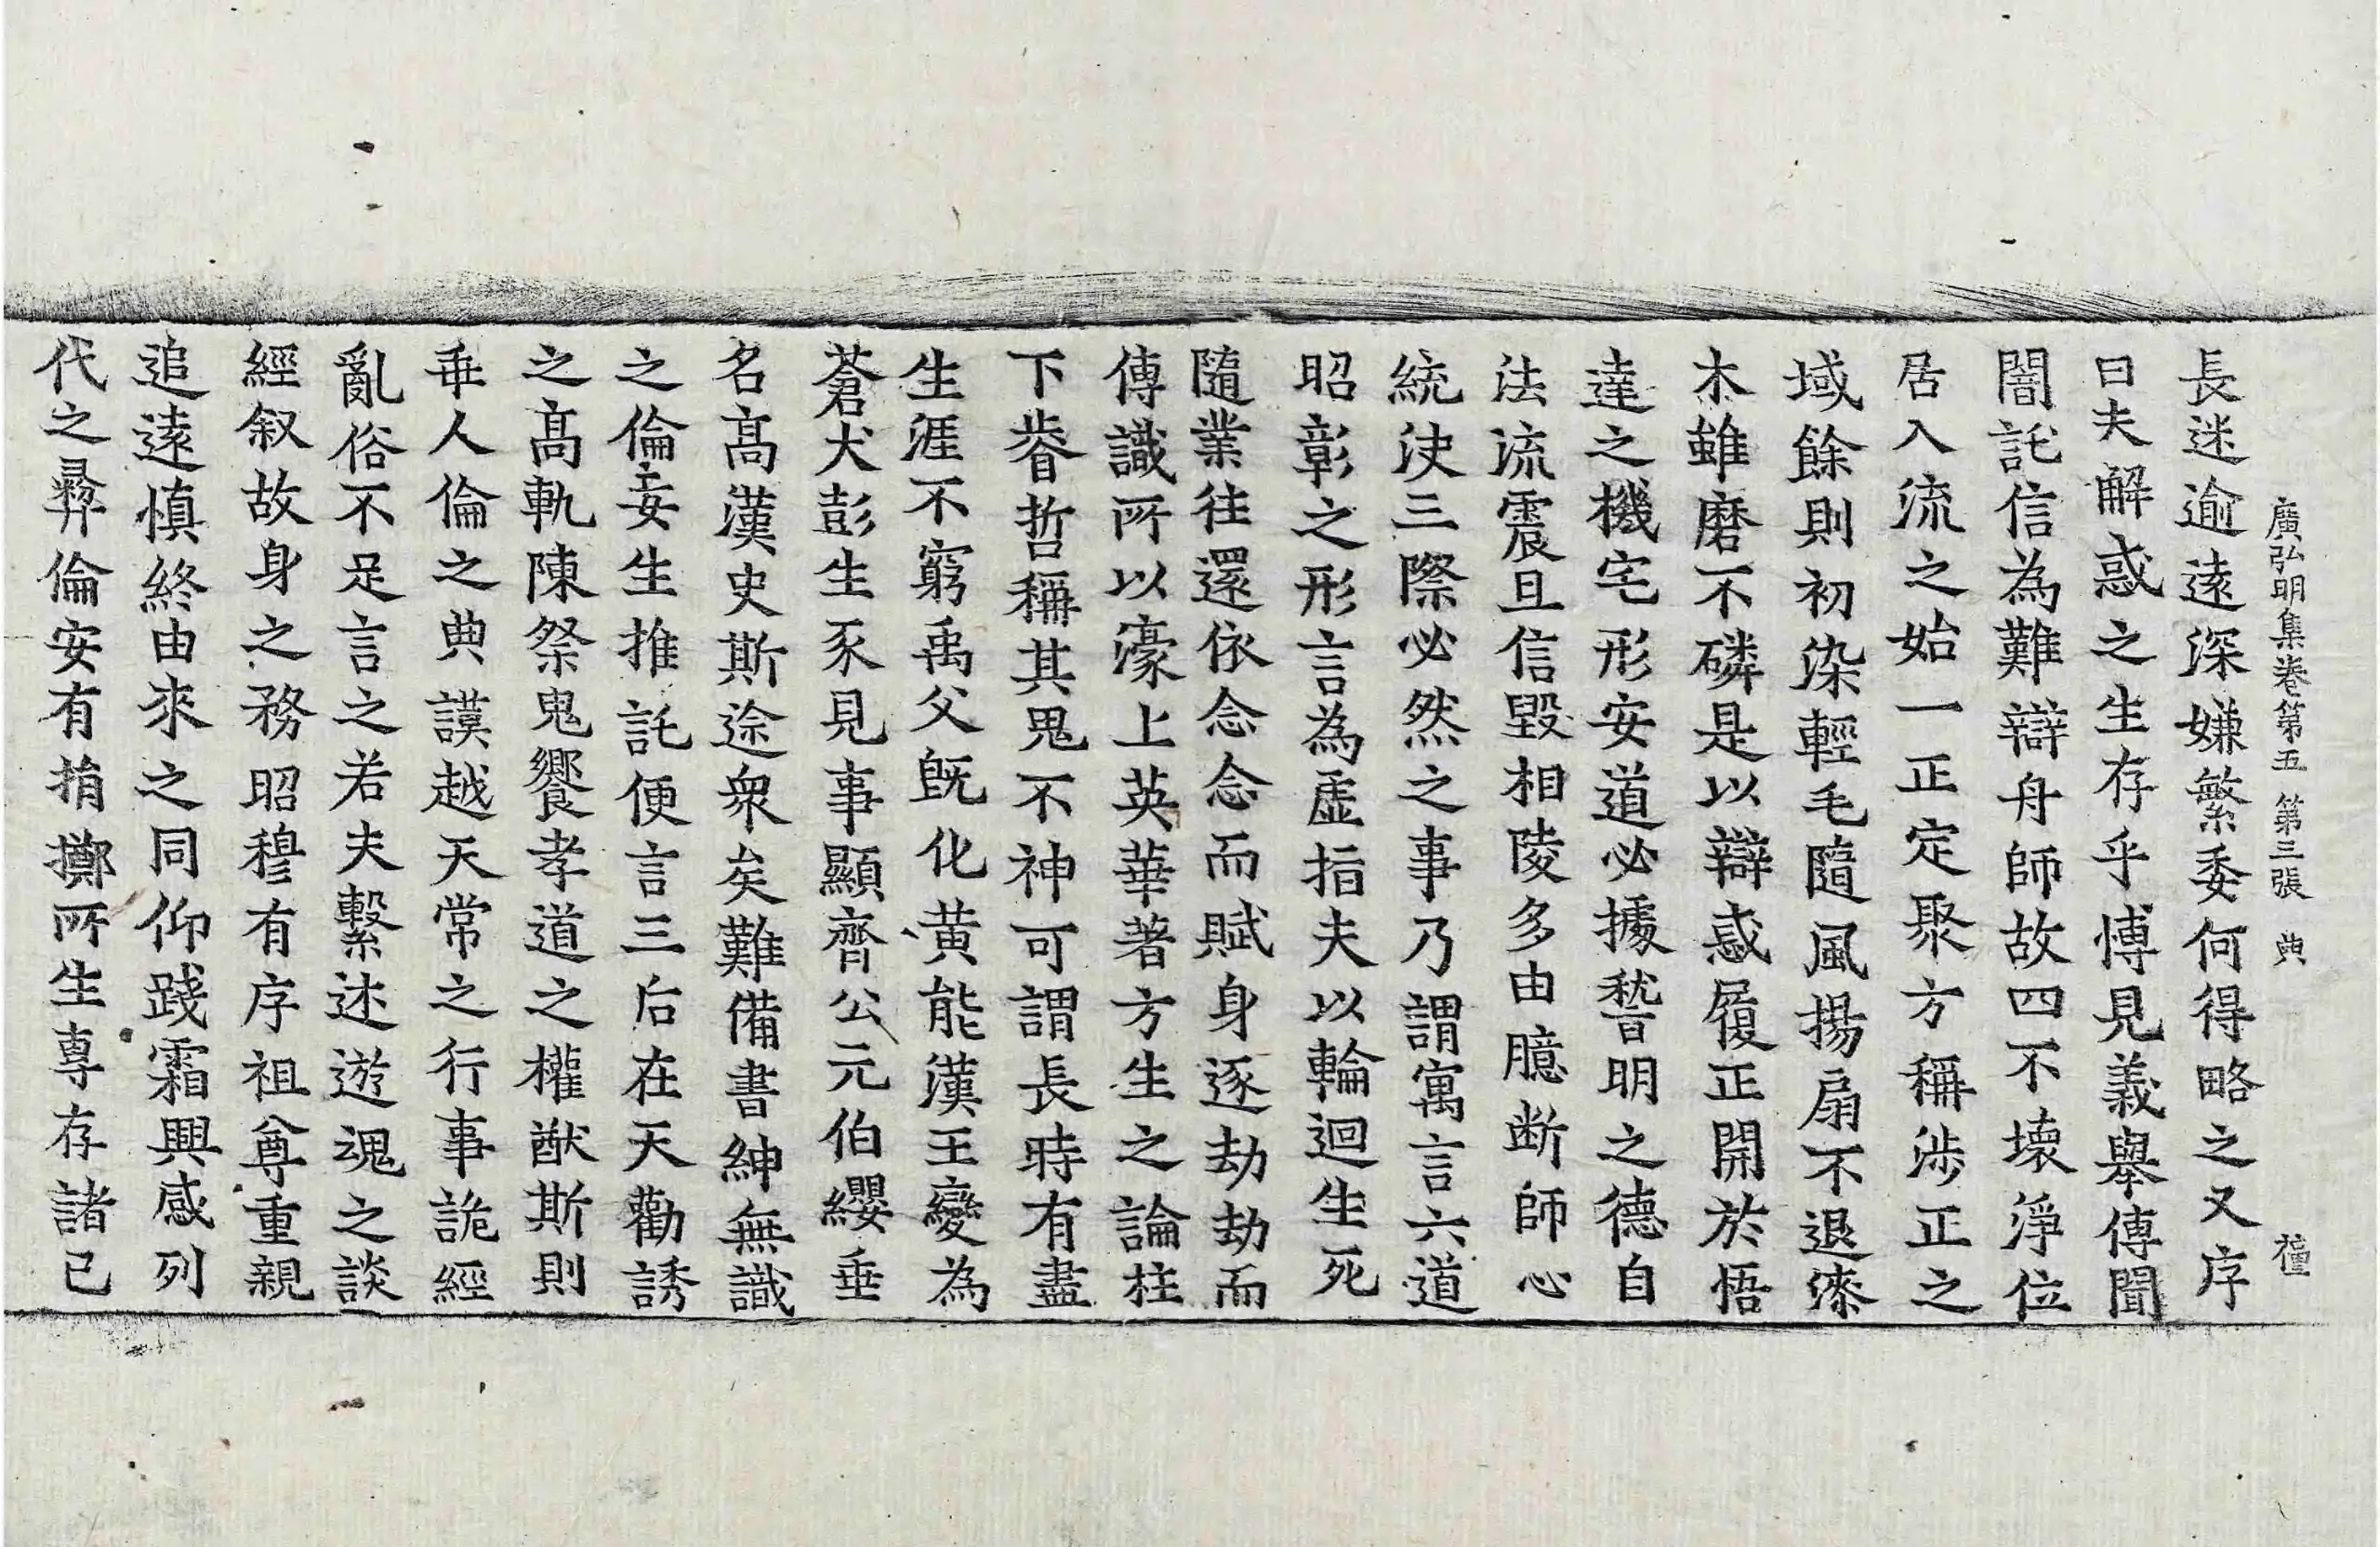 廣弘明集卷第五 第三張 典 㮔
長迷逾遠深嫌繁委何得略之又序
曰夫解惑之生存乎博見義舉傳聞
闇託信為難辯舟師故四不壞淨位
居入流之始一正定聚方稱涉正之
域餘則初染輕毛隨風揚扇不退漆
木雖磨不磷是以辯惑履正開於悟
達之機宅形安道必據嵇晉明之德自
法流震旦信毀相陵多由臆断師心
統決三際必然之事乃謂寓言六道
昭彰之形言為虛指夫以輪迴生死
隨業往還依念念而賦身逐劫劫而
傳識所以濠上英華著方生之論柱
下睿哲稱其鬼不神可謂長時有盡
生涯不窮禹父既化黃能漢王變為
蒼犬彭生豕見事顯齊公元伯纓垂
名高漢史斯途衆矣難備書紳無識
之倫妄生推託便言三后在天勸誘
之高軌陳祭鬼饗孝道之權猷斯則
乖人倫之典謨越天常之行事詭經
亂俗不足言之若夫繫述遊魂之談
經叙故身之務昭穆有序祖尊重親
追遠慎終由來之同仰踐霜興感列
代之彝倫安有捐擲所生專存諸己